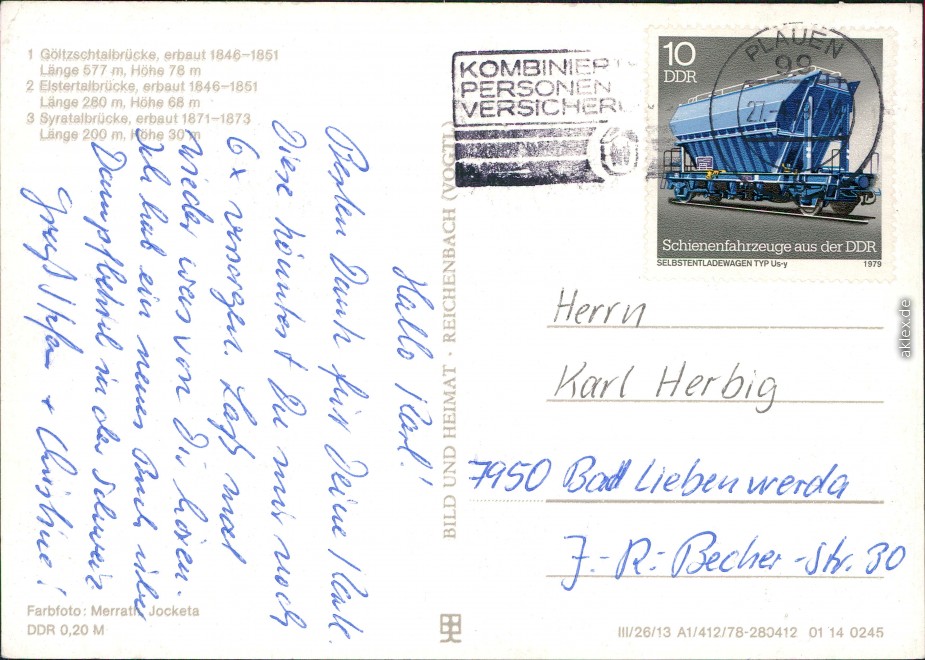 1 Göltzschtalbrücke, erbaut 1846–1851
Länge 577 m, Höhe 78 m
2 Elstertalbrücke, erbaut 1846–1851
Länge 280 m, Höhe 68 m
3 Syratalbrücke, erbaut 1871–1873
Länge 200 m, Höhe 30 m
Hallo Karl!
Besten Dank für Deine Karte.
Diese könntest Du mir noch
6 x besorgen. Laß mal
wieder was von Dir hören.
Ich hab ein neues Buch über
Dampfbetrieb in der Schweiz
Gruß + Christine!
Farbfoto: Merrath, Jocketa
DDR 0,20 M
BILD UND HEIMAT · REICHENBACH (VOGTL)
KOMBINIERT
PERSONEN
VERSICHER
PLAUEN
99
27.
10
DDR
Schienenfahrzeuge aus der DDR
SELBSTENTLADEWAGEN TYP Us-y 1979
Herrn
Karl Herbig
7950 Bad Liebenwerda
J.-R.-Becher-Str. 30
III/26/13 A1/412/78-280412 01 14 0245
aklex.de